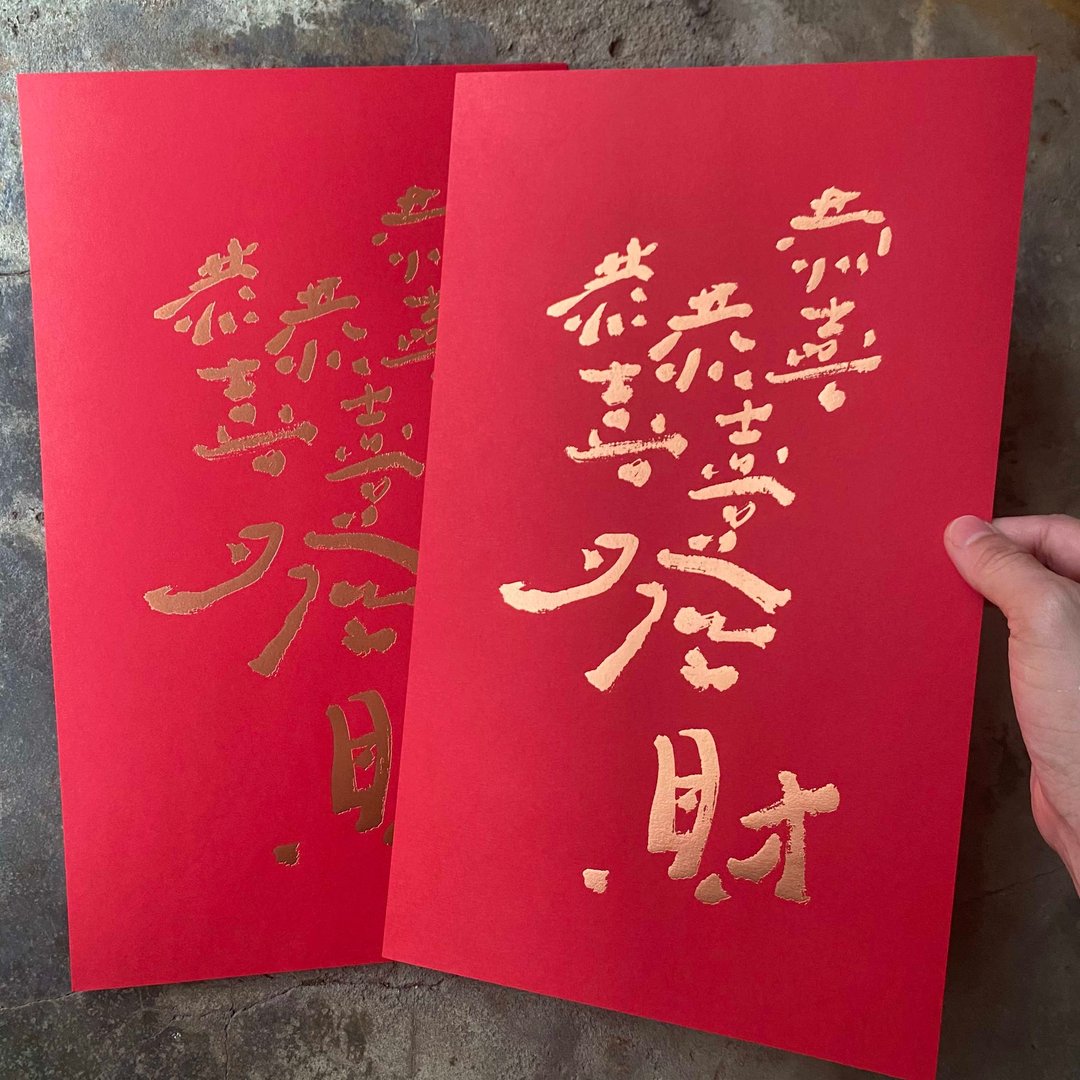 恭喜
恭喜
恭喜
發
財
恭喜
恭喜
恭喜
發
財